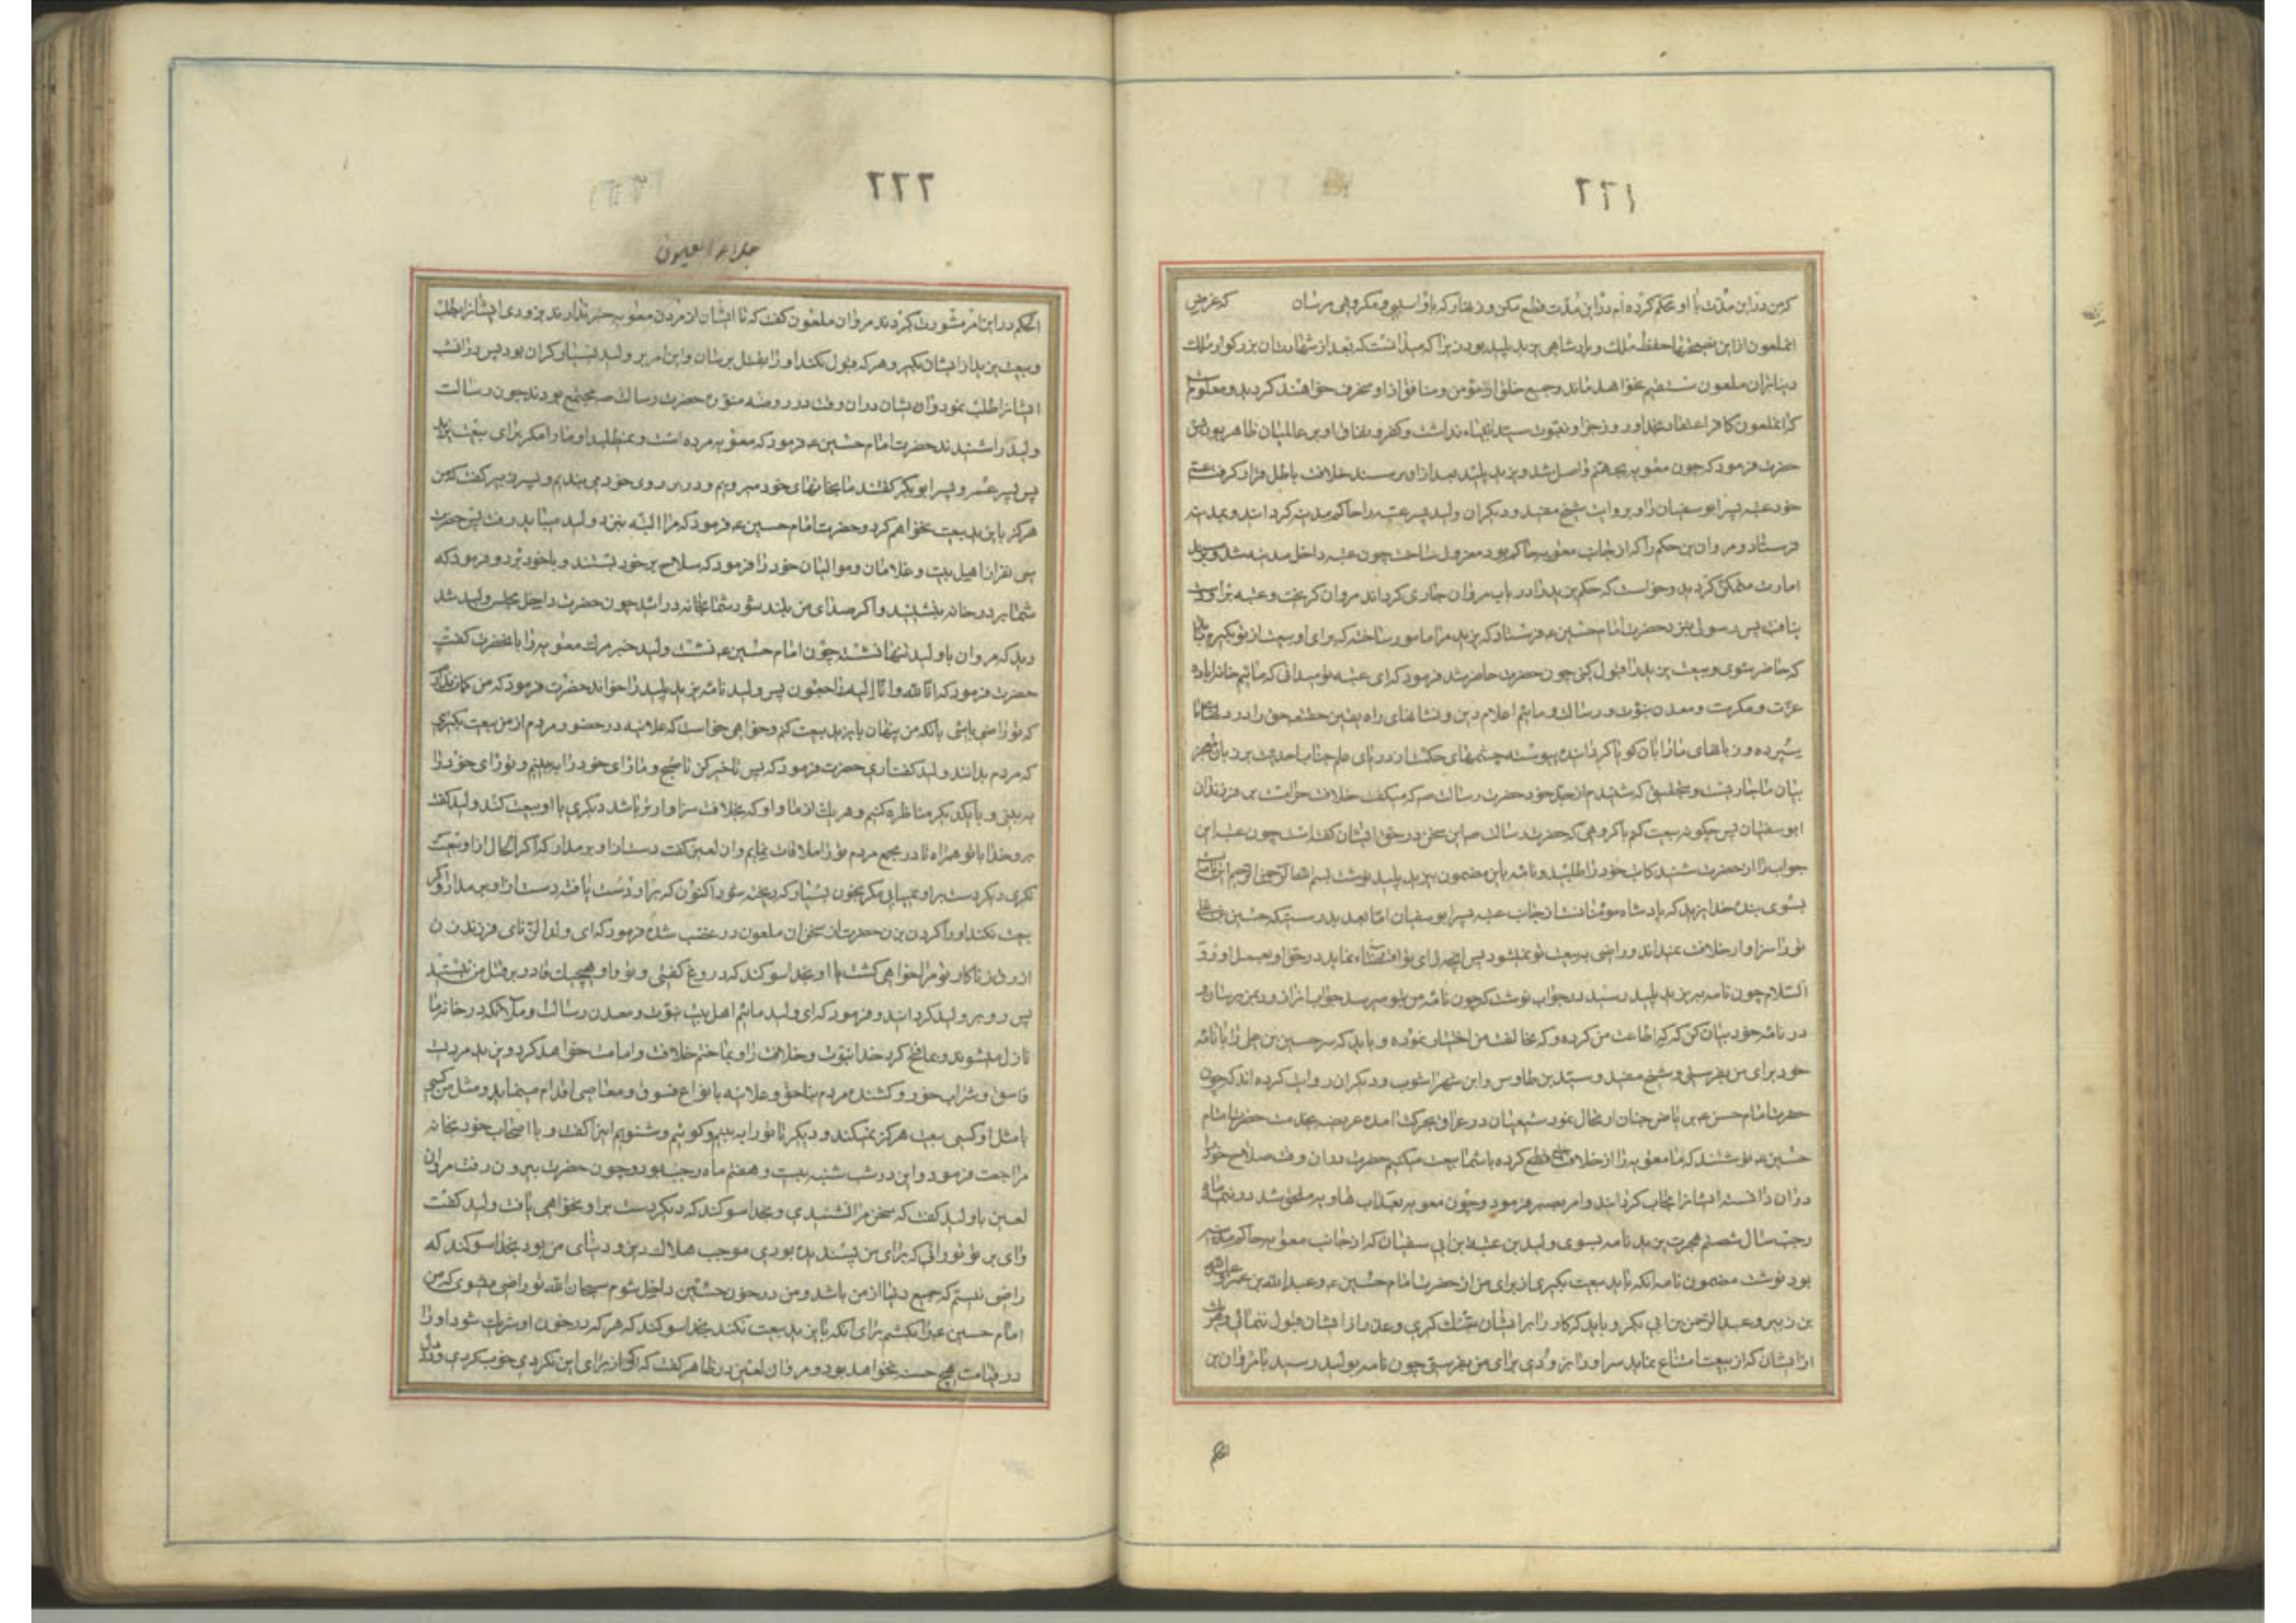 ۲۲۱
که من در این مدت با او محکم کرده‌ام در این مدت قطع مکن و زنهار که باو آسیبی و مکروهی مرسان که غرض
انملعون از این نصیحتها حفظ ملک و پادشاهی یزید پلید بود زیرا که میدانست که بعد از شهادت ان بزرکوار ملک
دنیا بران ملعون مستقیم نخواهد ماند و جمیع خلق از مؤمن و منافق از او منحرف خواهند کردید و معلوم است
که انملعون کافر اعتقاد بخدا و روز جزا و نبوت سید انبیاء نداشت و کفر و نفاق او بر عالمیان ظاهر بود پس
حضرت فرمود که چون معویه بجهنم واصل شد و یزید پلید بعد از او بر مسند خلافت باطل قرار کرفت عم
خود عتبه پسر ابو سفیان را و بروایت شیخ مفید و دیکران ولید پسر عتبه را حاکم مدینه کردانید و بمدینه
فرستاد و مروان بن حکم را که از جانب معویه حاکم بود معزول ساخت چون عتبه داخل مدینه شد و بر مسند
امارت متمکن کردید و خواست که حکم یزید را در باب مروان جاری کرداند مروان کریخت و عتبه بر او دست
نیافت پس رسولی بنزد حضرت امام حسین ع فرستاد که یزید مرا مامور ساخته که برای او بیعت از تو بکیرم باید
که حاضر شوی و بیعت یزید را قبول کنی چون حضرت حاضر شد فرمود که ای عتبه تو میدانی که مائیم خانواده
عزت و مکرمت و معدن نبوت و رسالت و مائیم اعلام دین و نشانهای راه یقین حقتعالی حق را در دلهای ما
سپرده و زبانهای ما را بان کویا کردانیده پیوسته چشمهای حکمت از دریای علم جناب احدیت بر زبان معجز
بیان ما جاریست و بتحقیق که شنیدم از جد خود حضرت رسالت ص که میکفت خلافت حرامست بر فرزندان
ابو سفیان پس چکونه بیعت کنم با کروهی که حضرت رسالت ص این سخن در حق ایشان کفته است چون عتبه این
جواب را از حضرت شنید کاتب خود را طلبید و نامه باین مضمون بیزید پلید نوشت بسم الله الرحمن الرحیم این نامه ایست
بسوی بنده خدا یزید که پادشاه مؤمنانست از جانب عتبه پسر ابو سفیان اما بعد بدرستیکه حسین بن علی
تو را سزاوار خلافت نمیداند و راضی به بیعت تو نمیشود پس انچه رای تو اقتضاء نماید در حق او بعمل اور و
السلام چون نامه بیزید پلید رسید در جواب نوشت که چون نامه من بتو میرسد جواب انرا زود بمن برسان و
در نامه خود بیان کن که که اطاعت من کرده و که مخالفت من اختیار نموده و باید که سر حسین بن علی را با نامه
خود برای من بفرستی و شیخ مفید و سید بن طاوس و ابن شهراشوب و دیکران روایت کرده اند که چون
حضرت امام حسن ع بریاض جنان ارتحال نمود شیعیان در عراق بحرکت امده عریضه بخدمت حضرت امام
حسین ع نوشتند که ما معویه را از خلافت خلع کرده با شما بیعت میکنیم حضرت در ان وقت صلاح خود را
در ان ندانسته ایشانرا مجاب کردانید و امر بصبر فرمود و چون معویه بعذاب هاویه ملحق شد در نیمه ماه
رجب سال شصتم هجرت یزید نامه بسوی ولید بن عتبه بن ابی سفیان که از جانب معویه حاکم مدینه
بود نوشت مضمون نامه انکه باید بیعت بکیری از برای من از حضرت امام حسین ع و عبدالله بن عمر و عبدالله
بن زبیر و عبدالرحمن بن ابی بکر و باید که کار را بر ایشان تنک کیری و عذر از ایشان قبول ننمائی و هر یک
از ایشان که از بیعت امتناع نماید سر او را بزودی برای من بفرستی چون نامه بولید رسید با مروان بن
الحکم
۲۲۲
جلاء العیون
الحکم در این امر مشورت کردند مروان ملعون کفت که تا ایشان از مردن معویه خبر ندارند بزودی ایشانرا بطلب
و بیعت یزید از ایشان بکیر و هر که قبول نکند او را بقتل برسان و این امر بر ولید بسیار کران بود پس در انشب
ایشانرا طلب نمود و ان ایشان در ان وقت در روضه منوره حضرت رسالت ص مجتمع بودند چون رسالت
ولید را شنیدند حضرت امام حسین ع فرمود که معویه مرده است و نمیطلبد او ما را مکر برای بیعت یزید
پس پسر عمر و پسر ابو بکر کفتند ما بخانهای خود میرویم و در بر روی خود می بندیم و پسر زبیر کفت که من
هرکز با یزید بیعت نخواهم کرد و حضرت امام حسین ع فرمود که مرا البته بنزد ولید میباید رفت پس حضرت
سی نفر از اهل بیت و غلامان و موالیان خود را فرمود که سلاح بر خود بستند و با خود برد و فرمود که
شما بر در خانه بنشینید و اکر صدای من بلند شود شما بخانه درائید چون حضرت داخل مجلس ولید شد
دید که مروان با ولید تنها نشسته چون امام حسین ع نشست ولید خبر مرک معویه را بانحضرت کفت
حضرت فرمود که انا لله و انا الیه راجعون پس ولید نامه یزید پلید را خواند حضرت فرمود که من کمان ندارم
که تو راضی باشی بانکه من پنهان با یزید بیعت کنم و خواهی خواست که علانیه در حضور مردم از من بیعت بکیری
که مردم بدانند ولید کفت اری حضرت فرمود که پس تاخیر کن تا صبح و ما رای خود را به بینیم و تو رای خود را
به بینی و با یکدیکر مناظره کنیم و هر یک از ما و او که بخلافت سزاوارتر باشد دیکری با او بیعت کند ولید کفت
برو خدا با تو همراه تا در مجمع مردم تو را ملاقات نمایم و ان لعین کفت دست از او بر مدار که اکر الحال از او بیعت
نکیری دیکر دست بر او نمییابی مکر بخون بسیار که ریخته شود اکنون که بر او دست یافته دست از او بر مدار و اکر
بیعت نکند او را کردن بزن حضرت از سخن ان ملعون در غضب شده فرمود که ای ولد الزنای فرزند زن
ازرق زناکار تو مرا خواهی کشت یا او بخدا سوکند که دروغ کفتی و تو و او هیچیک قادر بر قتل من نیستید
پس رو بولید کردانید و فرمود که ای ولید مائیم اهل بیت نبوت و معدن رسالت و ملائکه در خانه ما
نازل میشوند و بما فتح کرد خدا نبوت و خلافت را و بما ختم خلافت و امامت خواهد کرد و یزید مردیست
فاسق و شراب خور و کشنده مردم بناحق و علانیه بانواع فسوق و معاصی اقدام مینماید و مثل من کسی
با مثل او کسی بیعت هرکز نمیکند و دیکر تا تو را به بینیم و کوئیم و شنویم این را کفت و با اصحاب خود بخانه
مراجعت فرمود و این در شب شنبه بیست و هفتم ماه رجب بود و چون حضرت بیرون رفت مروان
لعین با ولید کفت که سخن مرا نشنیدی و بخدا سوکند که دیکر دست بر او نخواهی یافت ولید کفت
وای بر تو تو رائی که برای من پسندیده بودی موجب هلاک دین و دنیای من بود بخدا سوکند که
راضی نیستم که جمیع دنیا از من باشد و من در خون حسین داخل شوم سبحان الله تو راضی میشوی که من
امام حسین ع را بکشم برای انکه با یزید بیعت نکند بخدا سوکند که هر که در خون او شریک شود او را
در قیامت هیچ حسنه نخواهد بود و مروان لعین در ظاهر کفت که اکر از برای این نکردی خوب کردی و در دل